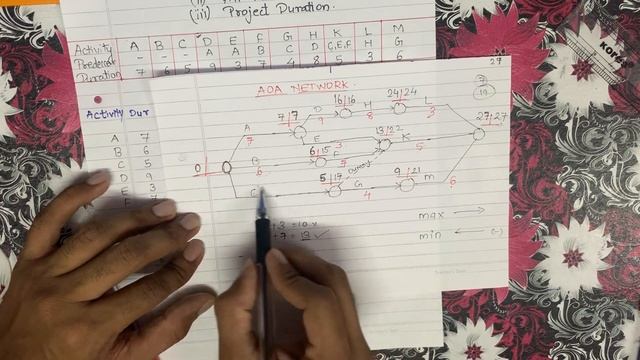 (iii) Project Duration.
Activity A B C D E F G H K L M
- - - A A B C D C,E,F H G
Duration 7 6 5 9 3 7 4 8 5 3 6
27
AOA NETWORK.
Activity Dur
A 7
B 6
C 5
D 9
E 3
F
7|7
D
9
16|16
H
8
24|24
L
3
27|27
A
7
E
3
13|22
K
5
0
B
6
6|15
F
7
dummy
C
5|17
G
4
9|21
M
6
+3 = 10 x
+7 = 13 ✓
max →
min ← (-)